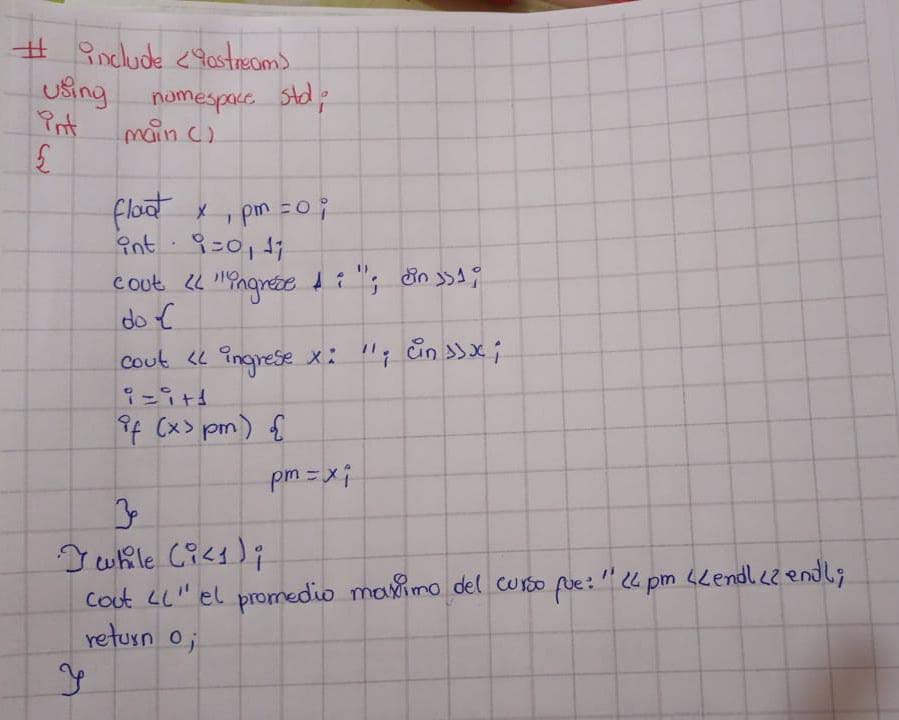 # include <iostream>
using namespace std;
int main()
{
float x, pm=0;
int i=0, 1;
cout << "ingrese 1 : "; cin >>1;
do {
cout << ingrese x: "; cin >>x;
i=i+1
if (x> pm) {
pm=x;
}
} while (i<1);
cout <<" el promedio maximo del curso fue: "<< pm <<endl<<endl;
return 0;
}